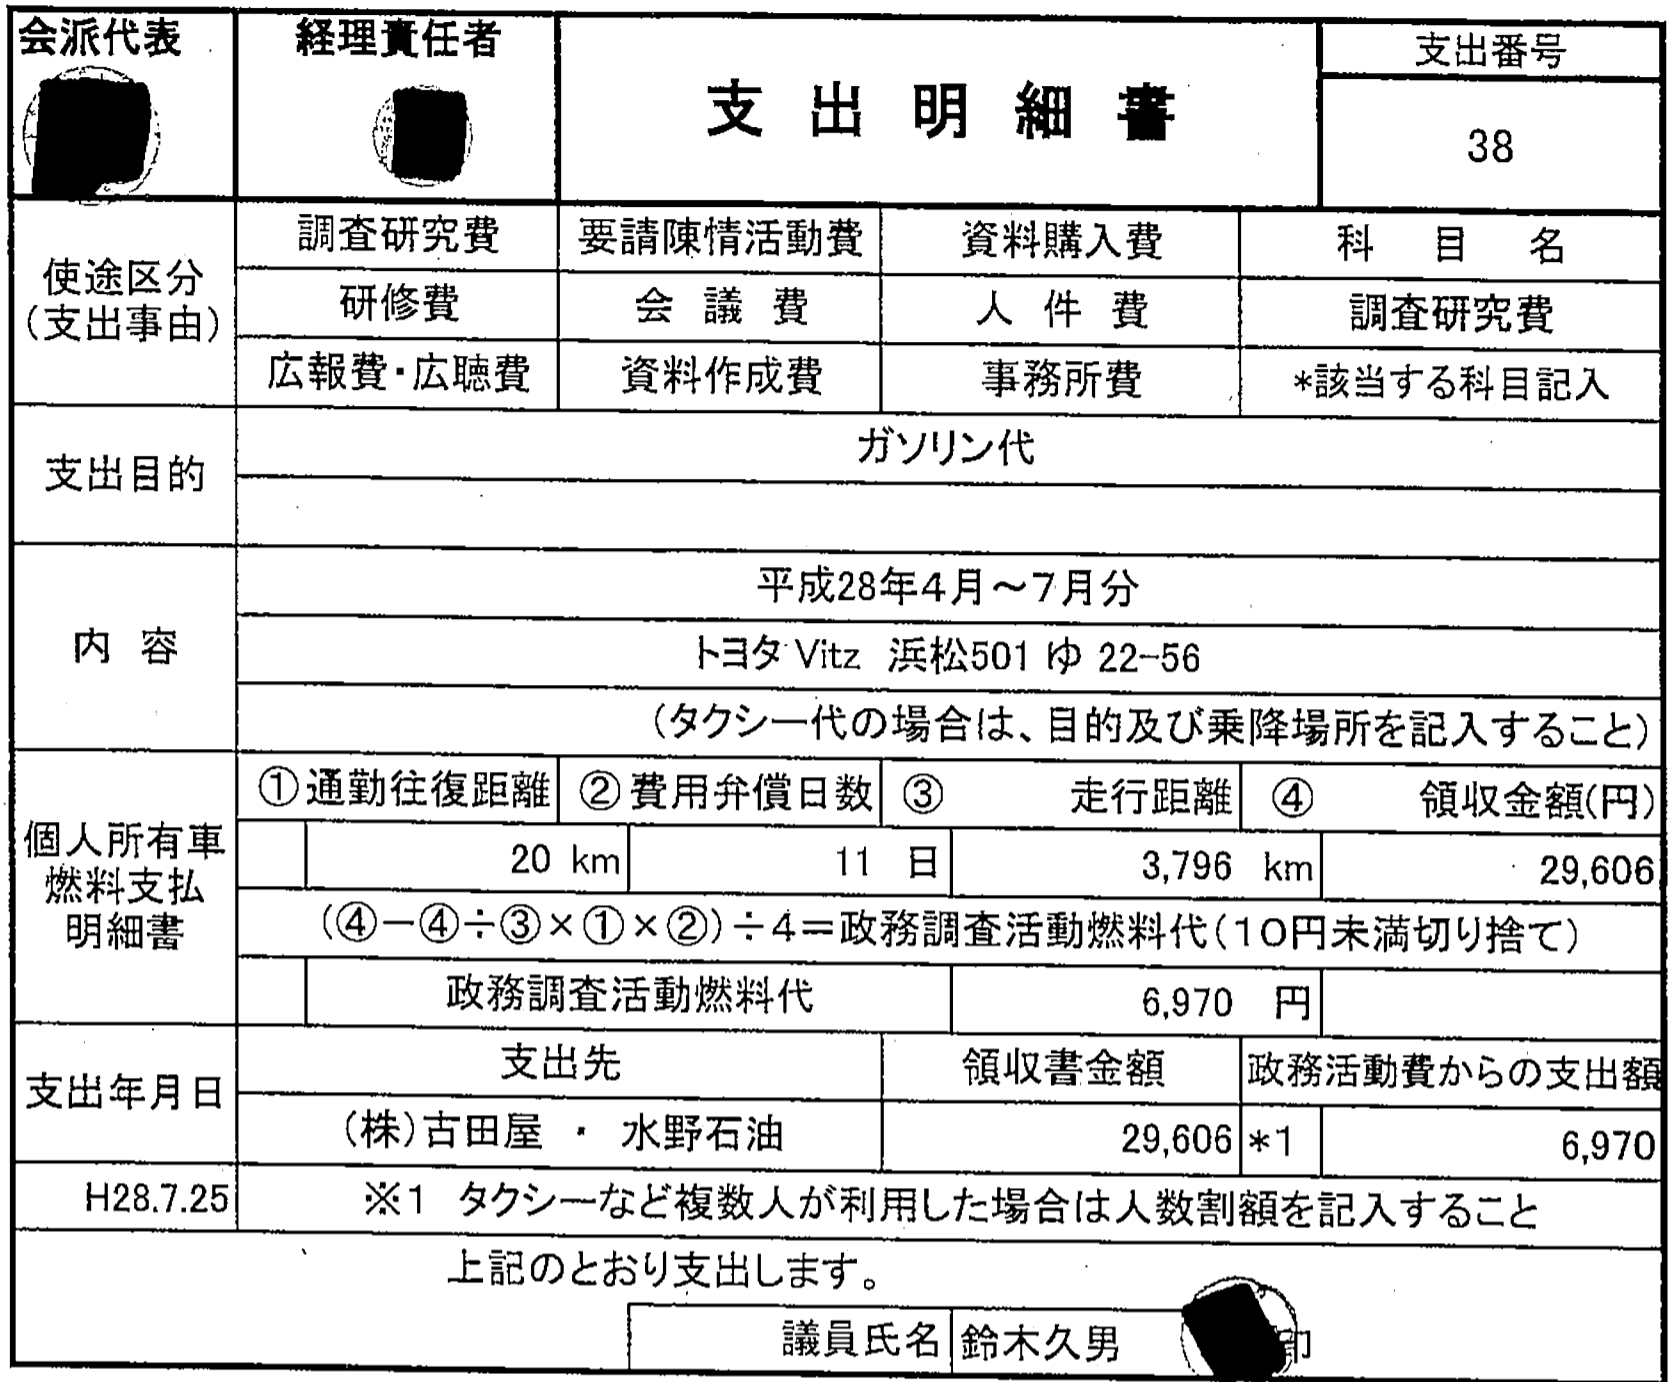 会派代表 経理責任者 支出明細書 支出番号
38
使途区分
(支出事由)
調査研究費 要請陳情活動費 資料購入費 科目名
研修費 会議費 人件費 調査研究費
広報費・広聴費 資料作成費 事務所費 *該当する科目記入
支出目的
ガソリン代
内容
平成28年4月～7月分
トヨタ Vitz 浜松501 ゆ 22-56
(タクシー代の場合は、目的及び乗降場所を記入すること)
個人所有車
燃料支払
明細書
①通勤往復距離 ②費用弁償日数 ③ 走行距離 ④ 領収金額(円)
20 km 11 日 3,796 km 29,606
(④－④÷③×①×②)÷4＝政務調査活動燃料代(10円未満切り捨て)
政務調査活動燃料代 6,970 円
支出年月日
支出先 領収書金額 政務活動費からの支出額
(株)古田屋 ・ 水野石油 29,606 *1 6,970
H28.7.25 ※1 タクシーなど複数人が利用した場合は人数割額を記入すること
上記のとおり支出します。
議員氏名 鈴木久男 印